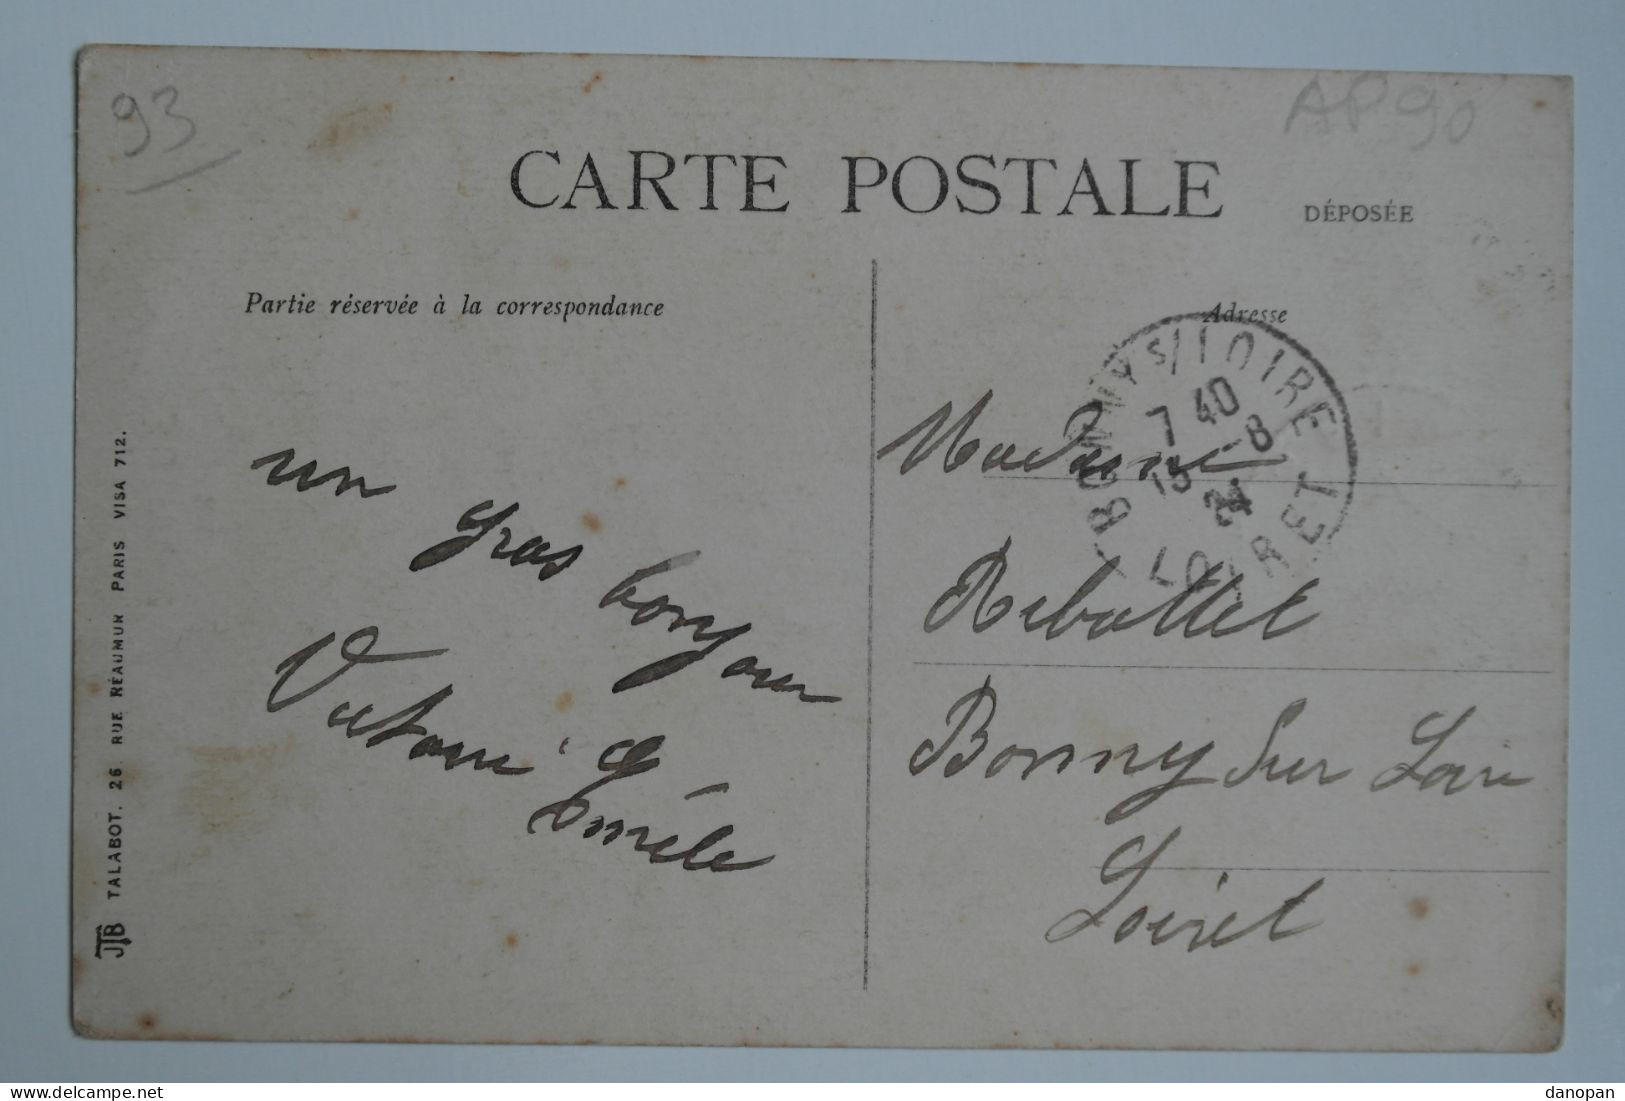 93
AP 90
CARTE POSTALE
DÉPOSÉE
Partie réservée à la correspondance
Adresse
un gras bonjour
Victorine
Eméle
BONNY S/LOIRE
7 40
15 -8
24
LOIRET
Madame
Rebottet
Bonny Sur Loire
Loiret
JTB TALABOT. 26. RUE RÉAUMUR PARIS VISA 712.
delcampe.net
danopan